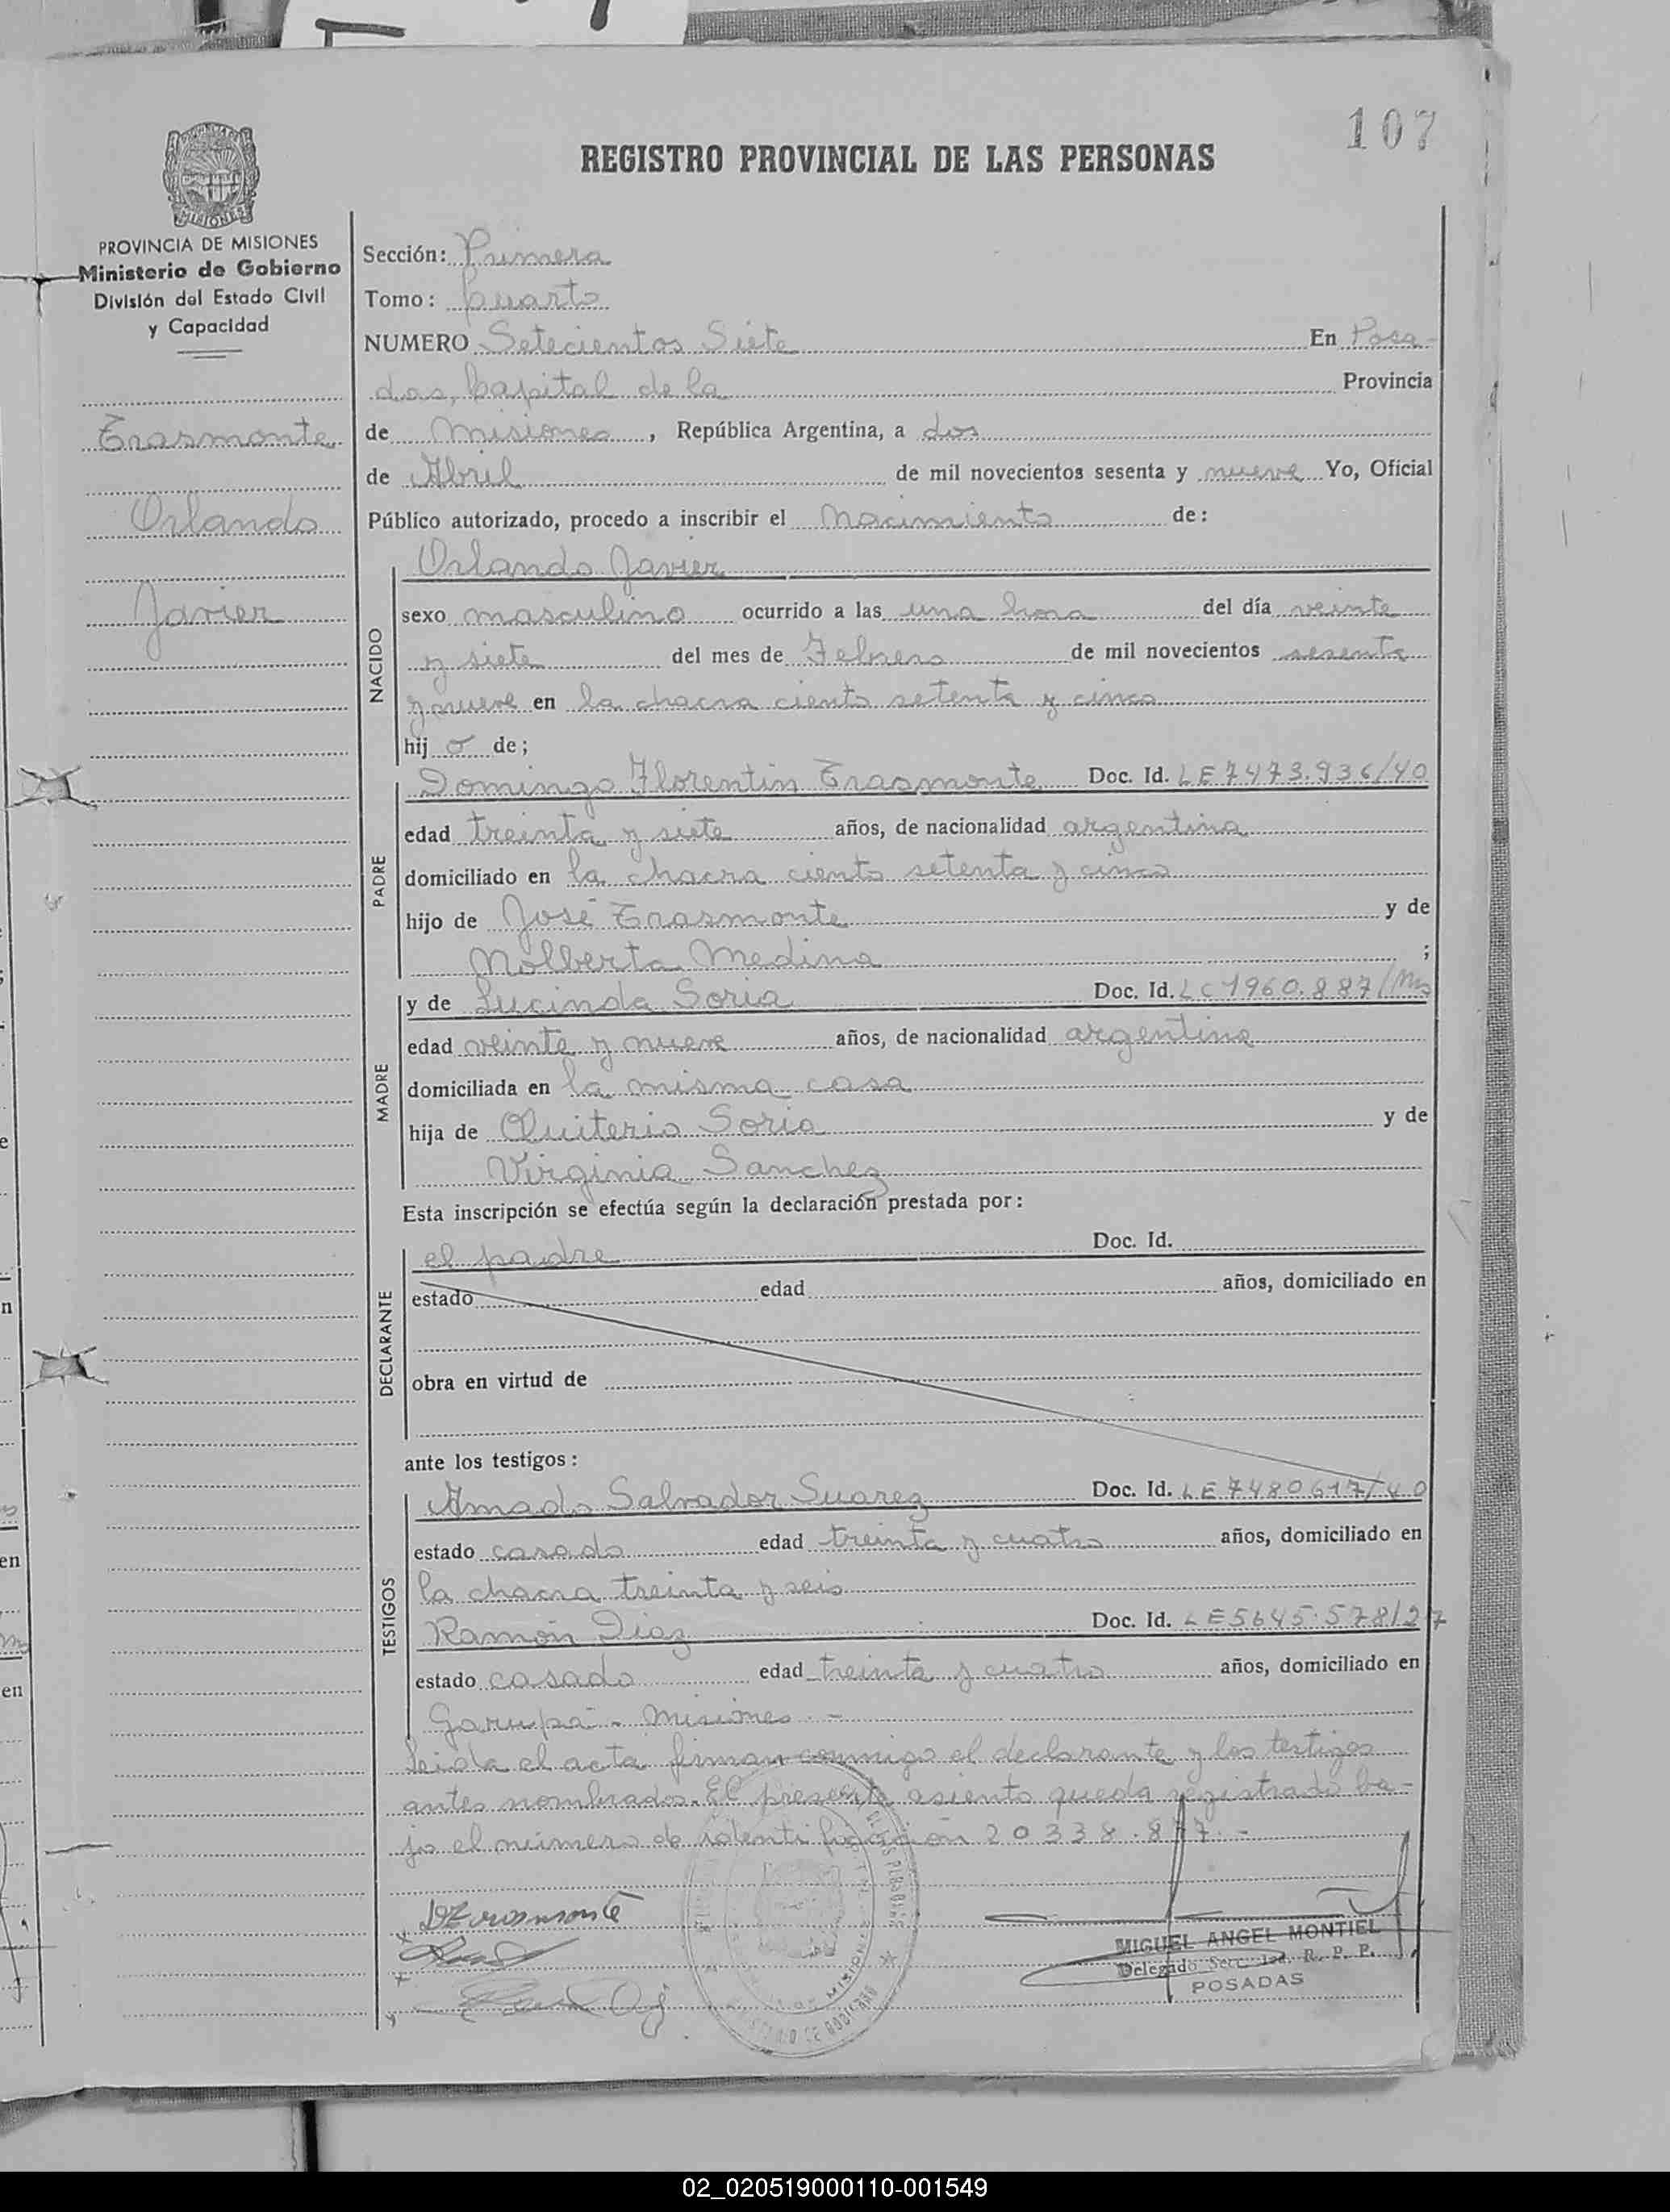 107
REGISTRO PROVINCIAL DE LAS PERSONAS
MISIONES
PROVINCIA DE MISIONES
Ministerio de Gobierno
División del Estado Civil
y Capacidad
Erasmonte
Orlando
Javier
Sección: Primera
Tomo: Cuarto
NUMERO Setecientos Siete En Posa-
das, Capital de la Provincia
de Misiones, República Argentina, a dos
de Abril de mil novecientos sesenta y nueve Yo, Oficial
Público autorizado, procedo a inscribir el Nacimiento de:
NACIDO
Orlando Javier
sexo masculino ocurrido a las una hora del día veinte
y siete del mes de Febrero de mil novecientos sesenta
y nueve en la chacra ciento setenta y cinco
hij o de;
PADRE
Domingo Florentin Erasmonte Doc. Id. LE7473.936/40
edad treinta y siete años, de nacionalidad argentina
domiciliado en la chacra ciento setenta y cinco
hijo de José Erasmonte y de
Nolberta Medina ;
MADRE
y de Lucinda Soria Doc. Id. LC 1960.887/Ms
edad veinte y nueve años, de nacionalidad argentina
domiciliada en la misma casa
hija de Quiterio Soria y de
Virginia Sanchez
Esta inscripción se efectúa según la declaración prestada por:
DECLARANTE
el padre Doc. Id.
estado edad años, domiciliado en
obra en virtud de
ante los testigos:
TESTIGOS
Amado Salvador Suarez Doc. Id. LE7480617/40
estado casado edad treinta y cuatro años, domiciliado en
la chacra treinta y seis
Ramón Diaz Doc. Id. LE5645.578/27
estado casado edad treinta y cuatro años, domiciliado en
Garupá - Misiones. -
Leida el acta firman conmigo el declarante y los testigos
antes nombrados. El presente asiento queda registrado ba-
jo el número de identificación 20338.877. -
MIGUEL ANGEL MONTIEL
Delegado Secc. 1ra. R. P. P.
POSADAS
02_020519000110-001549